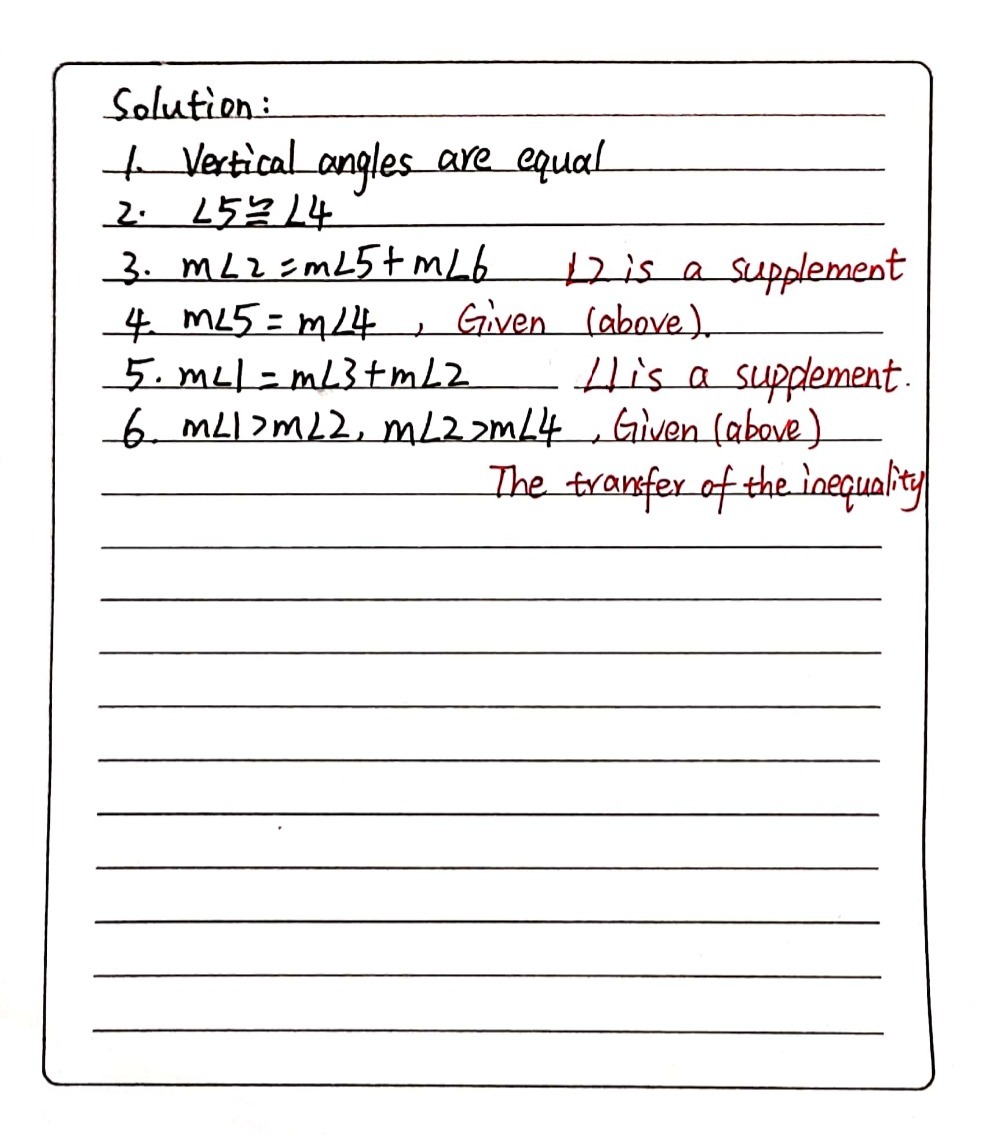 Solution:
1. Vertical angles are equal
2. ∠5≅∠4
3. m∠2=m∠5+m∠6 ∠2 is a supplement
4. m∠5=m∠4, Given (above).
5. m∠1=m∠3+m∠2 ∠1 is a supplement.
6. m∠1>m∠2, m∠2>m∠4, Given (above)
The transfer of the inequality